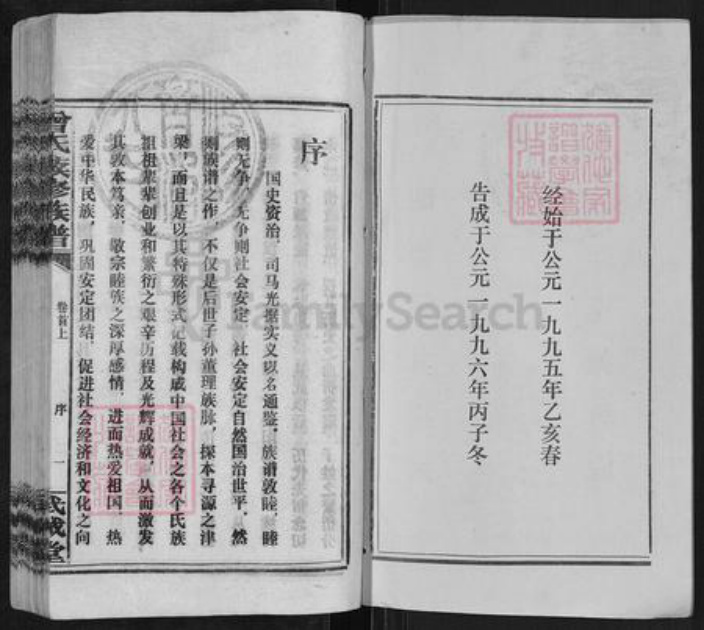 经始于公元一九九五年乙亥春
告成于公元一九九六年丙子冬
序
国史资治，司马光据实义以名通鉴。族谱敦睦，睦
则无争，无争则社会安定，社会安定自然国治世平，然
则族谱之作，不仅是后世子孙董理族脉，探本寻源之津
梁，而且是以其特殊形式记载构成中国社会之各个氏族
祖祖辈辈创业和繁衍之艰辛历程及光辉成就，从而激发
其敦本笃亲，敬宗睦族之深厚感情，进而热爱祖国，热
爱中华民族，巩固安定团结，促进社会经济和文化之向
曾氏 修族谱
卷首上
序
一
武城堂
FamilySearch